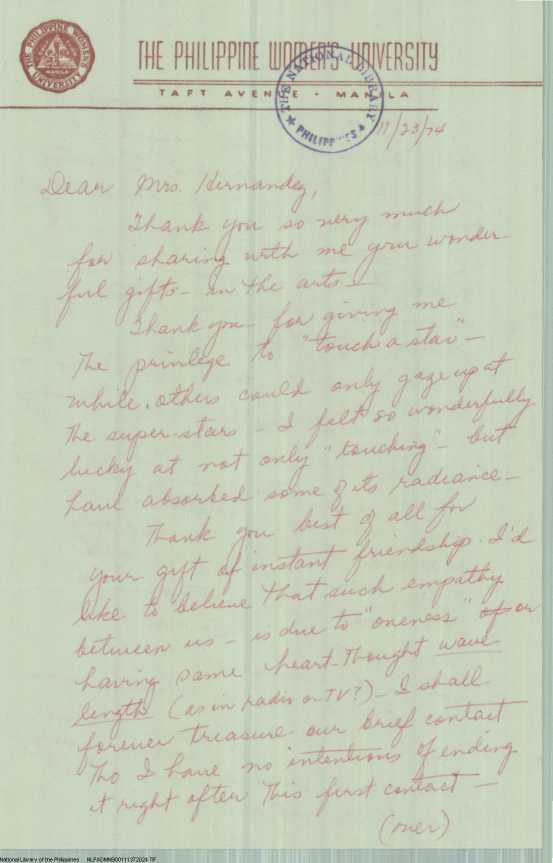 THE PHILIPPINE WOMEN'S UNIVERSITY
THE PHILIPPINE WOMEN'S UNIVERSITY
TAFT AVENUE · MANILA
THE NATIONAL LIBRARY
PHILIPPINES
11/23/74
Dear Mrs. Hernandez,
Thank you so very much
for sharing with me your wonder-
ful gifts - in the arts -
Thank you - for giving me
the privilege to "touch a star" -
while others could only gaze up at
the super-stars - I felt so wonderfully
lucky at not only "touching" - but
have absorbed some of its radiance -
Thank you best of all for
your gift of instant friendship. I'd
like to believe that such empathy
between us - is due to "oneness" of or
having same heart-thought wave
length (as in radio or TV?) - I shall
forever treasure our brief contact
tho I have no intentions of ending
it right after this first contact -
(over)
National Library of the Philippines NLPADMNB001113T2024.TIF